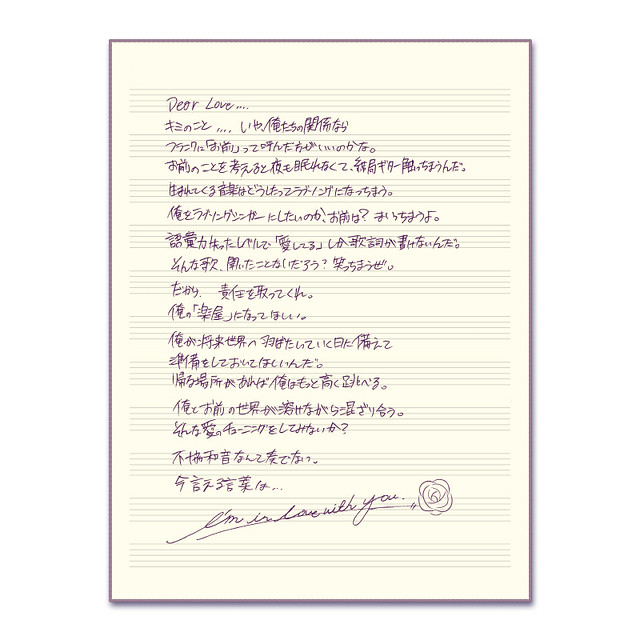 Dear Love....
キミのこと .... いや、俺たちの関係なら
フランクに「お前」って呼んだ方がいいのかな。
お前のことを考えると夜も眠れなくて、結局ギター触っちまうんだ。
生まれてくる音楽はどうしたってラブソングになっちまう。
俺をラブソングシンガーにしたいのか、お前は? まいっちまうよ。
語彙力失ったレベルで「愛してる」しか歌詞が書けないんだ。
そんな歌、聞いたことないだろう? 笑っちまうぜ。
だから、責任を取ってくれ。
俺の「楽屋」になってほしい。
俺が将来世界へ羽ばたいていく日に備えて
準備をしておいてほしいんだ。
帰る場所があれば俺はもっと高く跳べる。
俺とお前の世界が溶けながら混ざり合う。
そんな愛のチューニングをしてみないか?
不協和音なんて奏でない。
今言える言葉は...
I'm in Love with you.